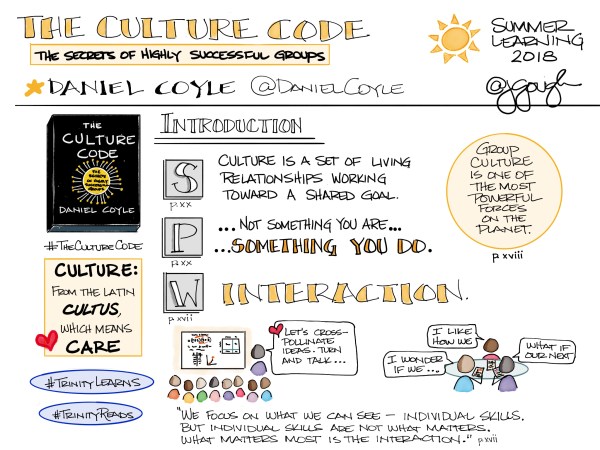 THE CULTURE CODE
THE SECRETS OF HIGHLY SUCCESSFUL GROUPS
DANIEL COYLE @DANIELCOYLE
SUMMER
LEARNING
2018
@jgough
THE
CULTURE
CODE
THE SECRETS
OF HIGHLY
SUCCESSFUL
GROUPS
DANIEL COYLE
#THECULTURECODE
CULTURE:
FROM THE LATIN
CULTUS,
WHICH MEANS
CARE
#TRINITYLEARNS
#TRINITYREADS
INTRODUCTION
S
p.xx
CULTURE IS A SET OF LIVING
RELATIONSHIPS WORKING
TOWARD A SHARED GOAL.
P
p.xx
...NOT SOMETHING YOU ARE...
...SOMETHING YOU DO.
W
p.xvii
INTERACTION.
GROUP
CULTURE
IS ONE OF
THE MOST
POWERFUL
FORCES
ON THE
PLANET.
p.xviii
LET'S CROSS-
POLLINATE
IDEAS. TURN
AND TALK...
I LIKE
HOW WE
I WONDER
IF WE...
WHAT IF
OUR NEXT
"WE FOCUS ON WHAT WE CAN SEE – INDIVIDUAL SKILLS.
BUT INDIVIDUAL SKILLS ARE NOT WHAT MATTERS.
WHAT MATTERS MOST IS THE INTERACTION." p.xvii